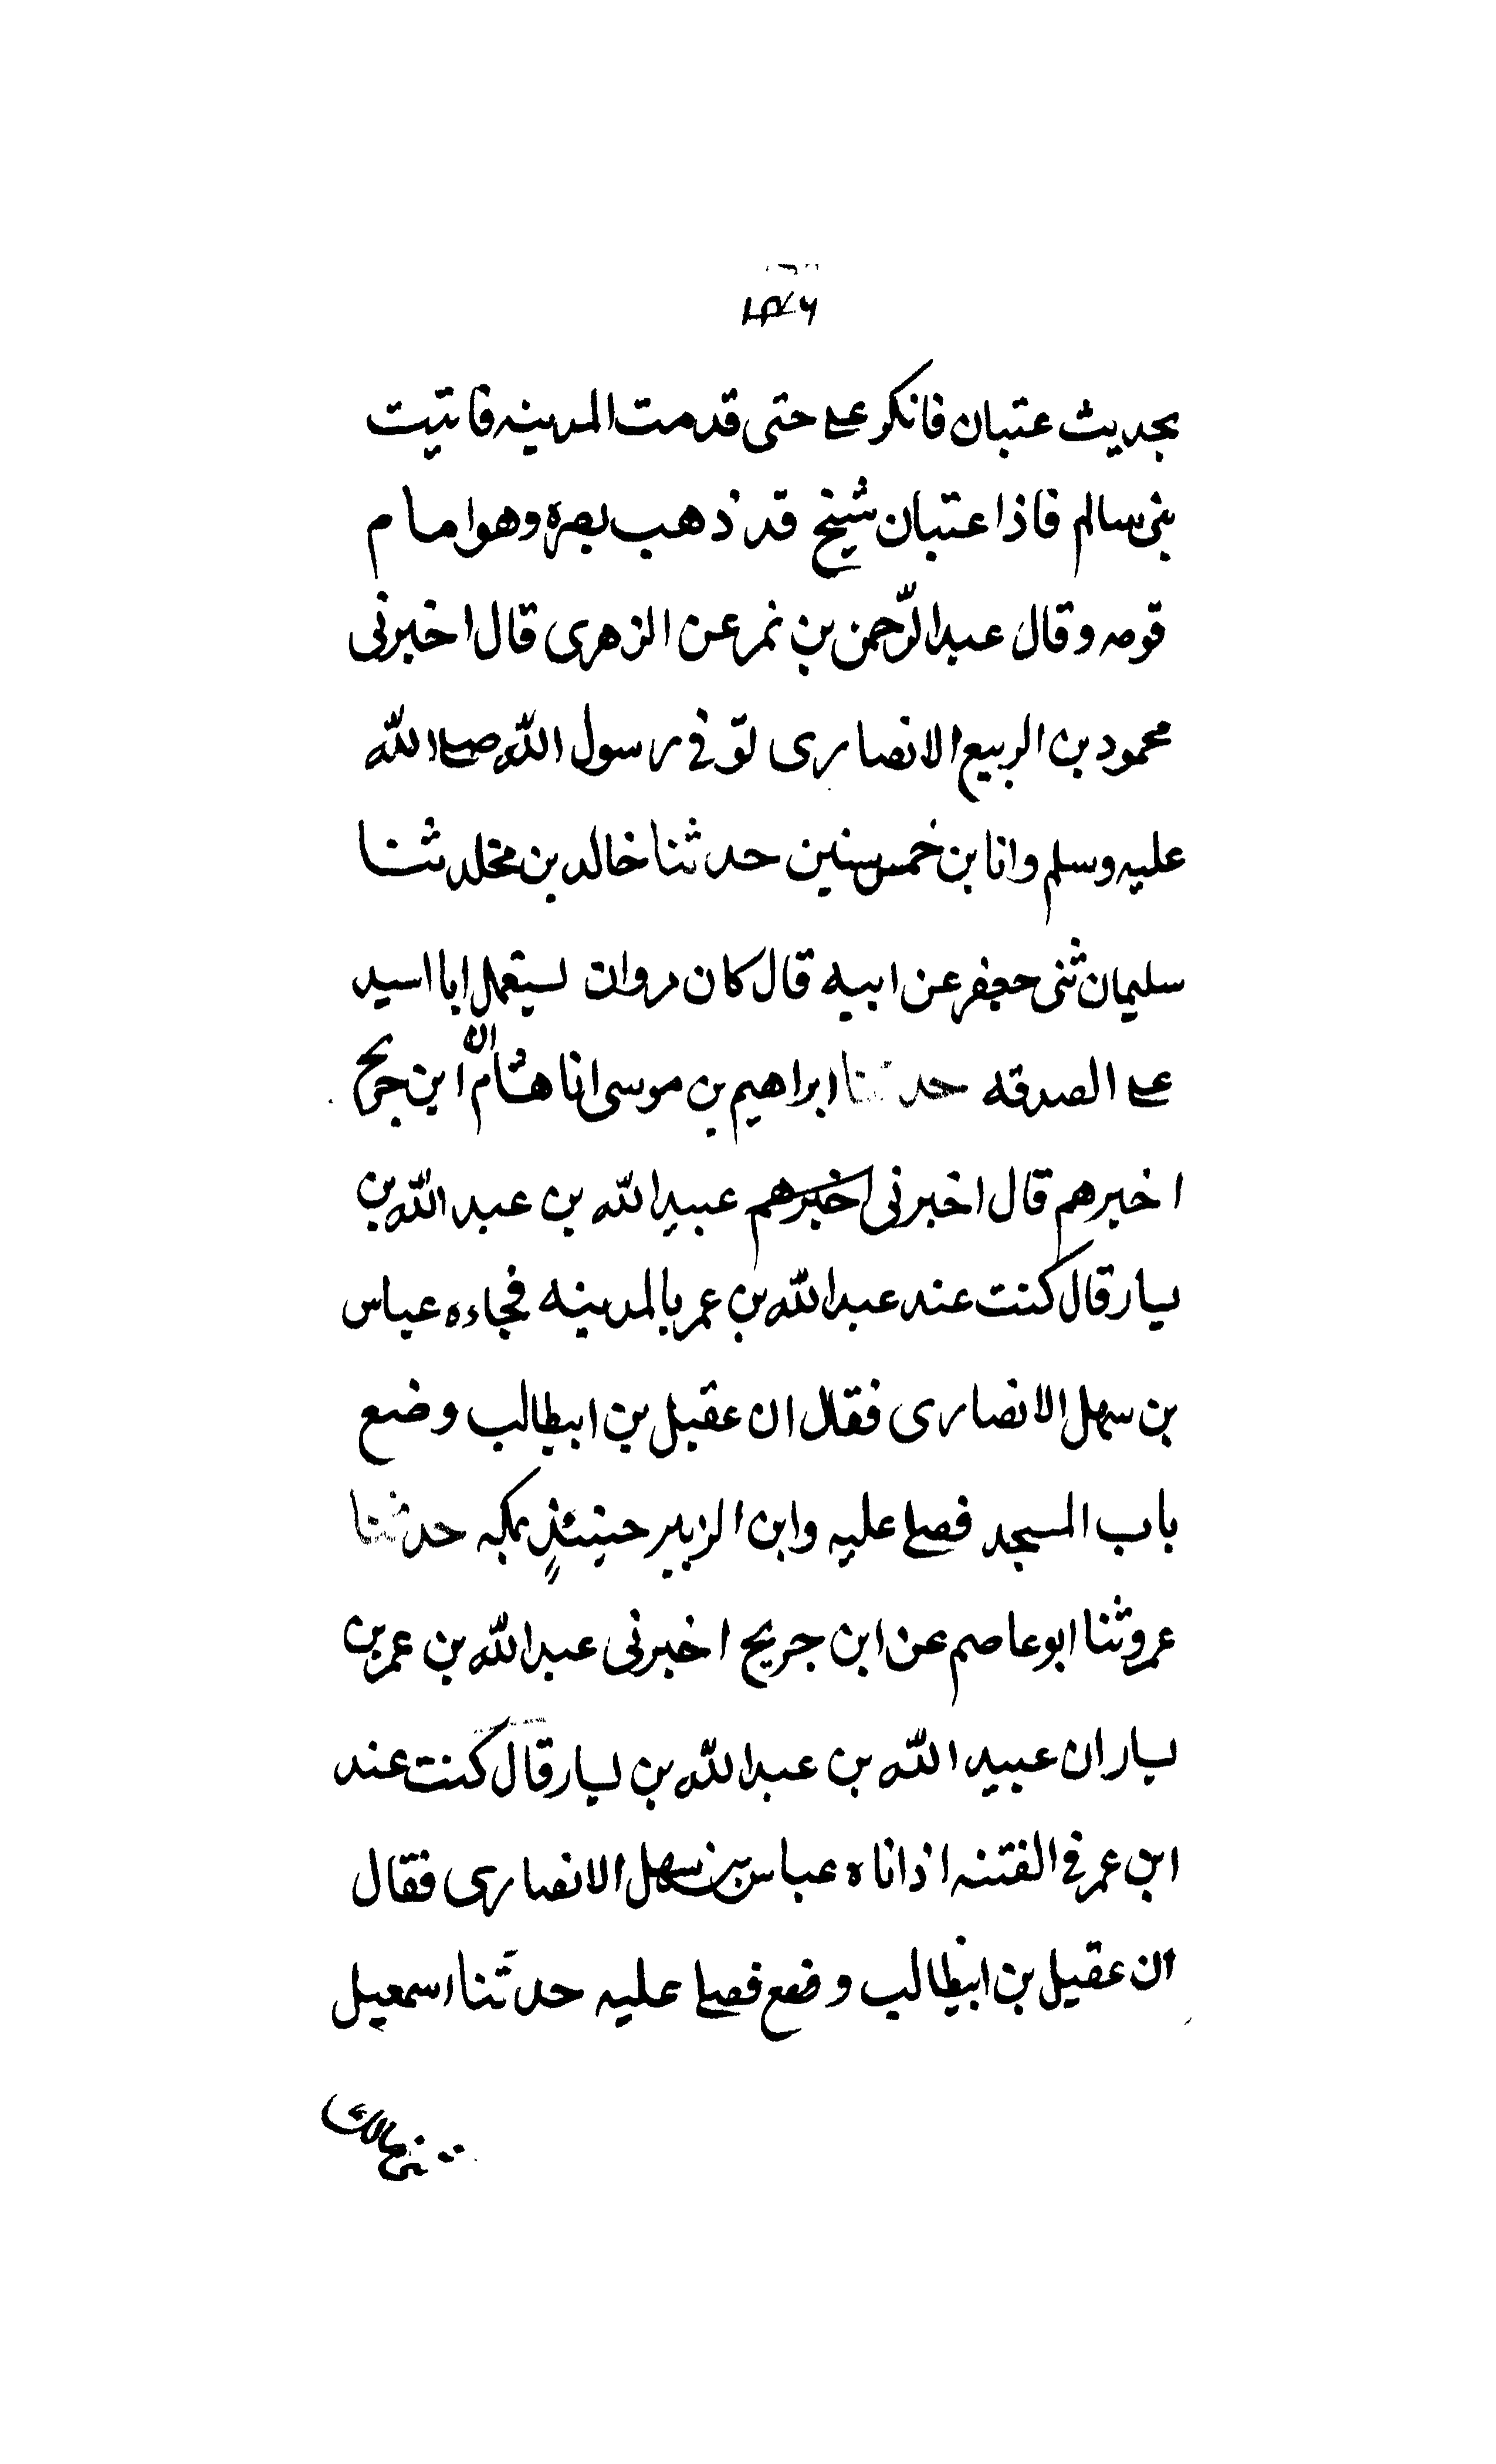 بحديث عتبان فانكر على حتى قدمت المدينه فاتيت
بنى سالم فاذا عتبان شيخ قد ذهب بصره وهو امام
قومه وقال عبد الرّحمن بن نمر عن الزهرى قال اخبرنى
محمود بن الربيع الانصارى توفى رسول اللّه صلى اللّه
عليه وسلم وانا بن خمس سنين حدثنا خالد بن مخلد ثنا
سليمان ثنى جعفر عن ابيه قال كان مروان يستعمل ابا اسيد
على الصدقه حدثنا ابراهيم بن موسى انا هشام ان ابن جريج
اخبرهم قال اخبرنى اخبرهم عبيد اللّه بن عبد اللّه بن
يسار قال كنت عند عبد اللّه بن عمر بالمدينه فجاءه عباس
بن سهل الانصارى فقال ان عقيل بن ابيطالب وضع
باب المسجد فصلى عليه وابن الزبير حينئذٍ بمكه حدثنا
عمرو ثنا ابو عاصم عن ابن جريج اخبرنى عبد اللّه بن عمر بن
يسار ان عبيد اللّه بن عبد اللّه بن يسار قال كنت عند
ابن عمر فى الفتنه اذ اتاه عباس بن سهل الانصارى فقال
ان عقيل بن ابيطالب وضع فصلى عليه حدثنا اسمعيل
بن مالك